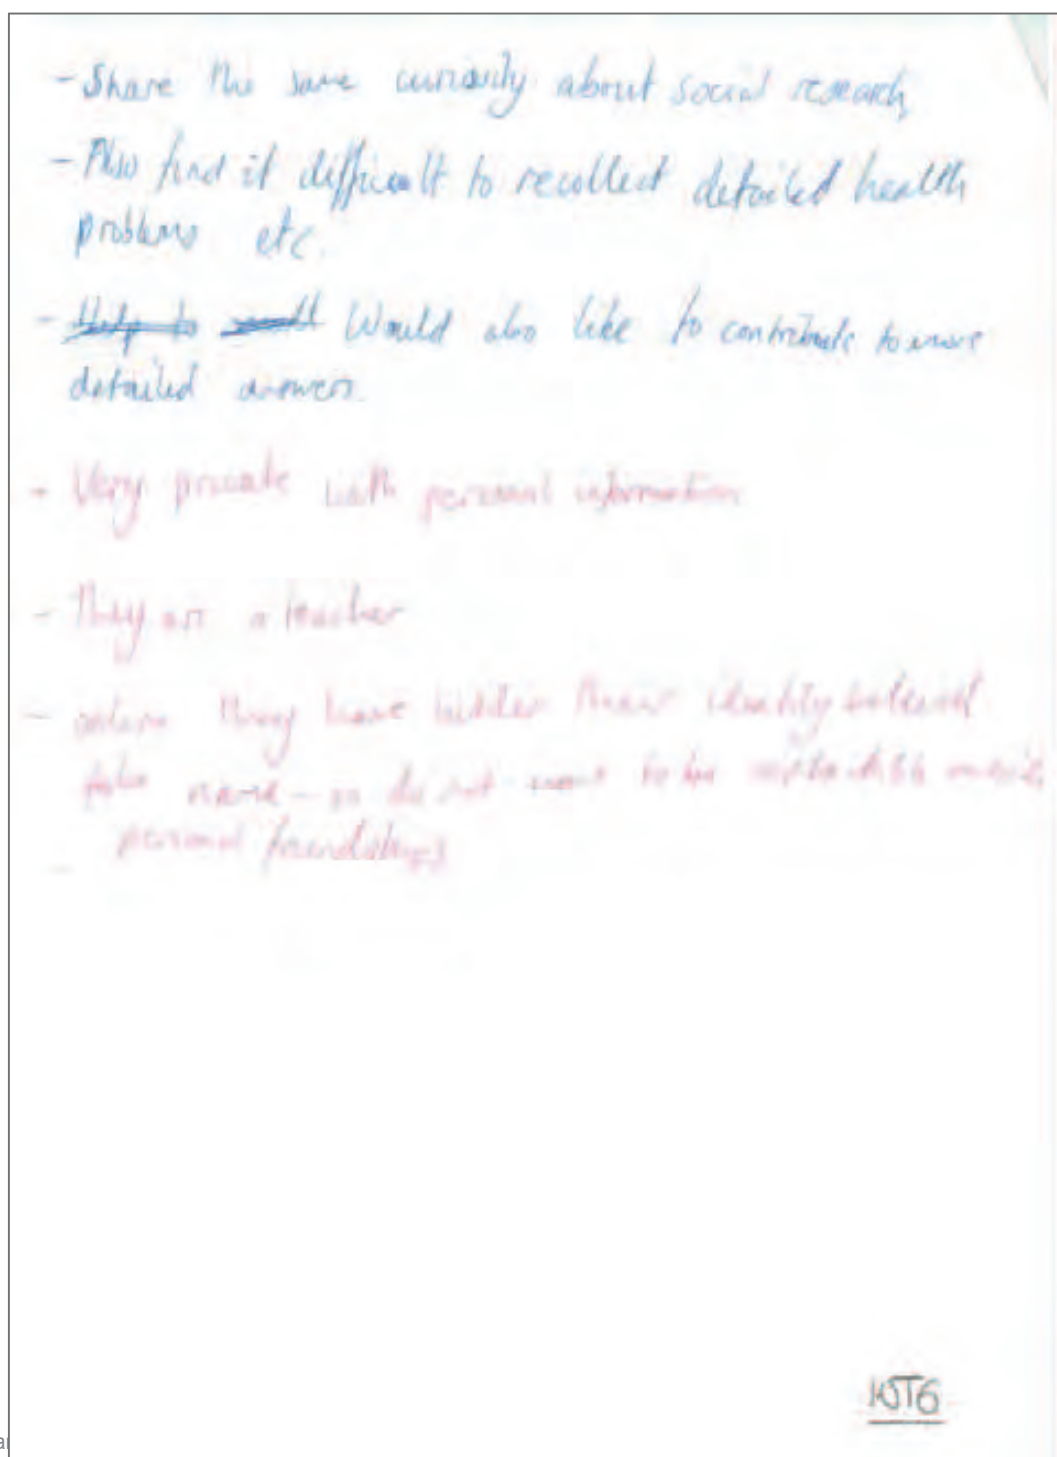 - Share the same curiosity about social research
- Also find it difficult to recollect detailed health
problems etc.
- Help to Would also like to contribute to more
detailed answers.
- Very private with personal information
- They are a teacher
- online they have hidden their identity behind
name - so do not want to be
personal friendships
-
WT6